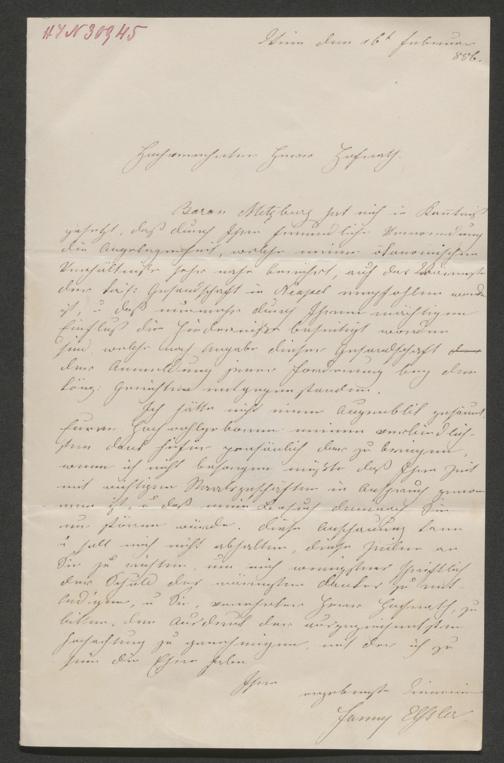 HIN 30945
Wien den 16t Februar
856.
Hochverehrter Herr Hofrath.
Baron Metzburg hat mich in Kenntniß
gesetzt, daß durch Ihre freundliche Verwendung
die Angelegenheit, welche meine öconomischen
Verhältniße sehr nahe berührt, auf das Wärmste
der kais: Gesandschaft in Neapel empfohlen worden
ist, u daß nunmehr durch Ihren mächtigen
Einfluß die Hinderniße beseitigt worden
sind, welche nach Angabe dieser Gesandschaft
der Anmeldung jener Forderung bey den
köng: Gerichten entgegen standen.
Ich hätte nicht einen Augenblik gesäumt
Euerer Hochwohlgeboren meinen verbindlich-
sten Dank hiefür persönlich dar zu bringen,
wenn ich nicht besorgen müßte daß Ihre Zeit
mit wichtigen Staatsgeschäften in Anspruch genom
men ist, u daß mein Besuch demnach Sie
nur stören würde. Diese Anschauung kann
u soll mich nicht abhalten, diese Zeilen an
Sie zu richten, um mich wenigstens schriftlich
der Schuld des wärmsten Dankes zu ent-
ledigen, u Sie, verehrter Herr Hofrath, zu
bitten, den Ausdruck der ausgezeichnetsten
Hochachtung zu genehmigen, mit der ich zu
sein die Ehre habe
Ihre
ergebenste Dienerin
Fanny Elßler